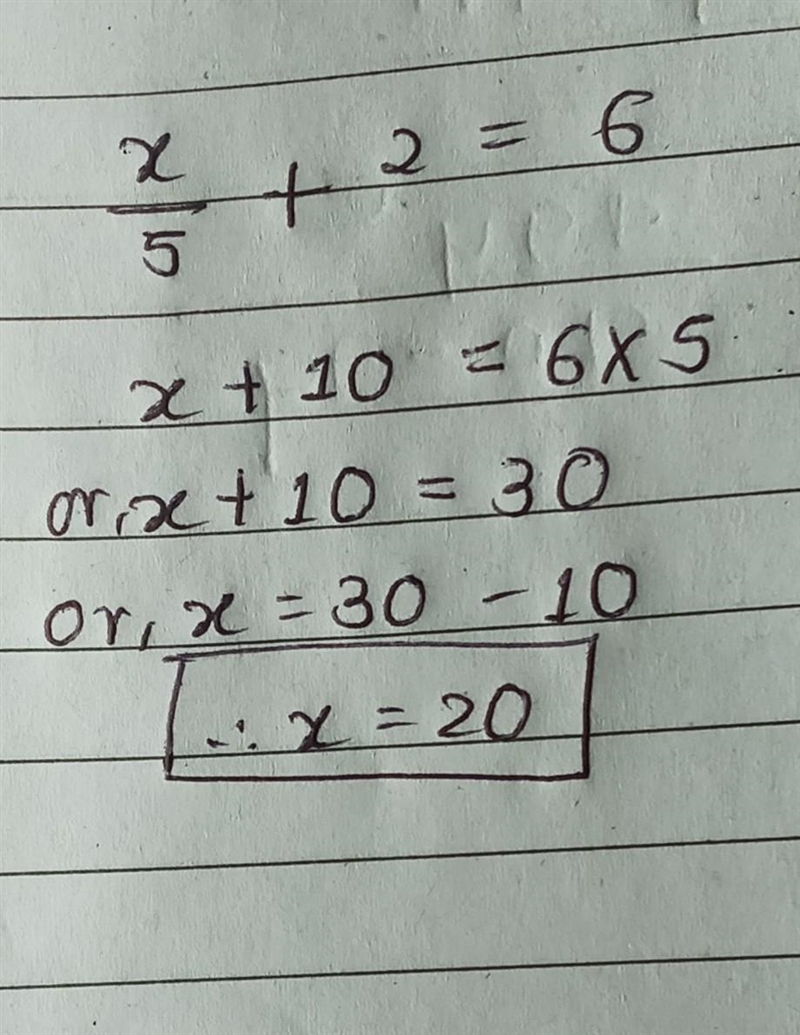 x/5 + 2 = 6
x + 10 = 6 × 5
or, x + 10 = 30
or, x = 30 - 10
∴ x = 20